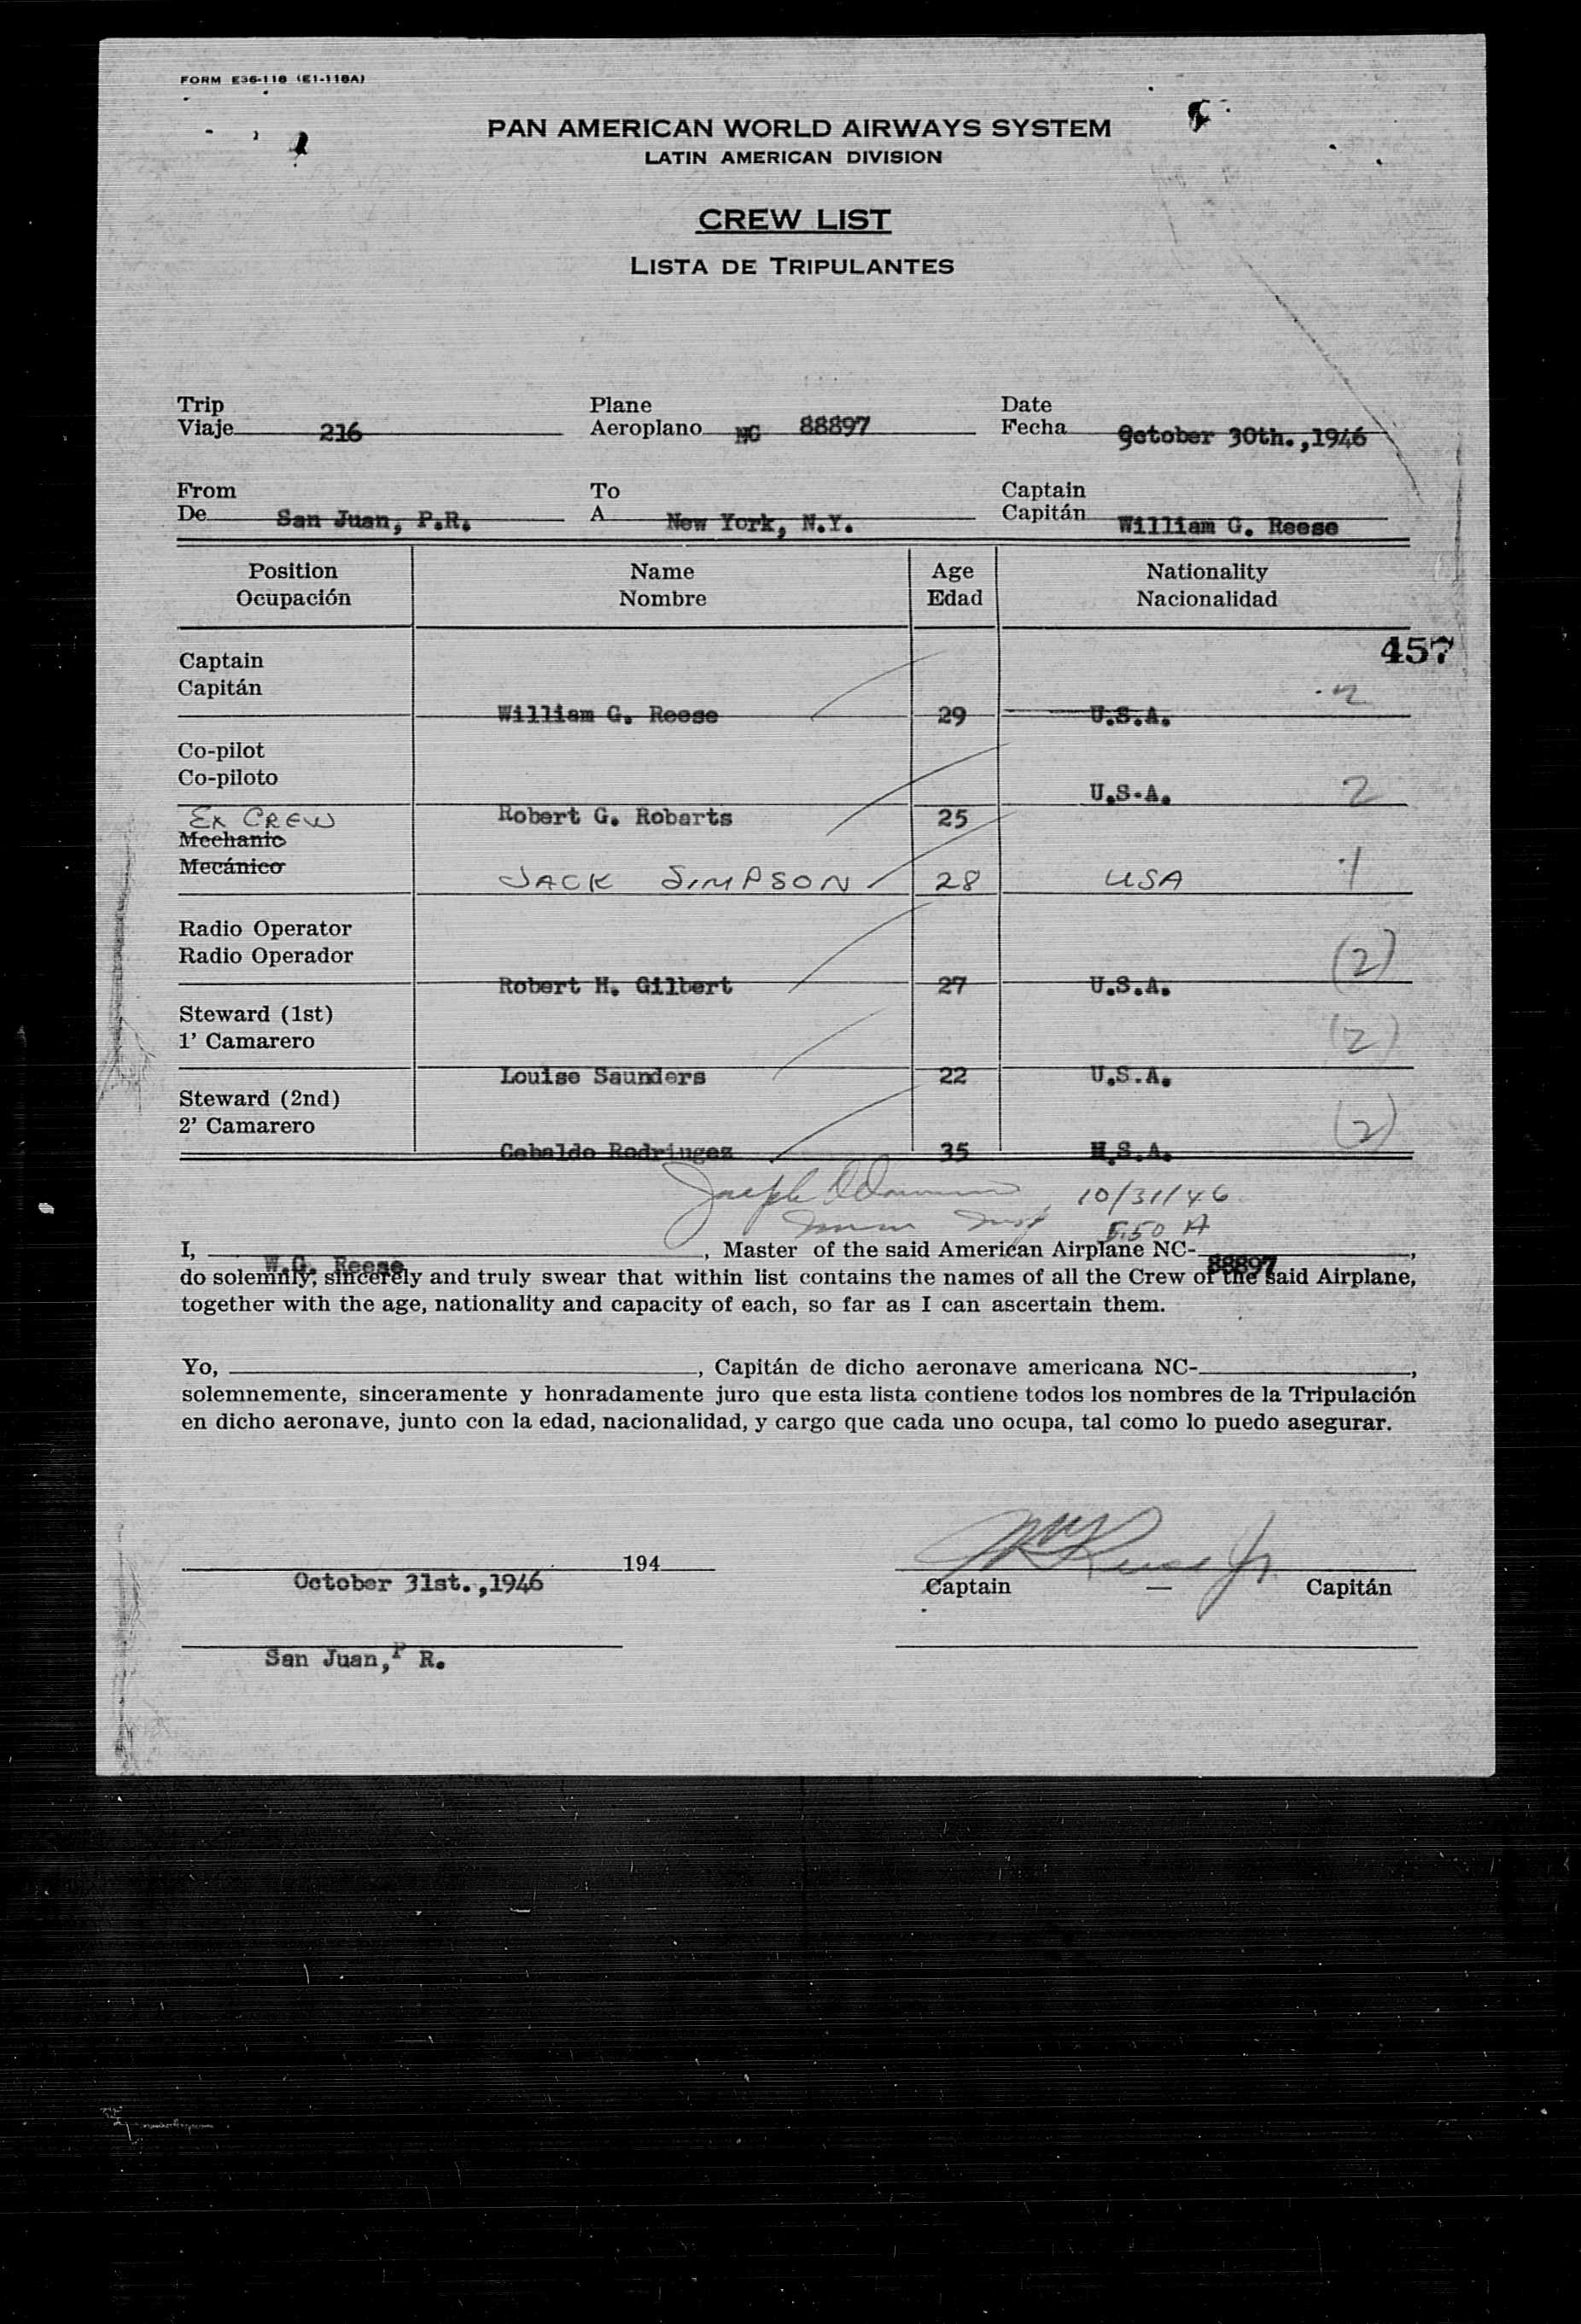 FORM E36-118 (E1-118A)
PAN AMERICAN WORLD AIRWAYS SYSTEM
LATIN AMERICAN DIVISION
CREW LIST
LISTA DE TRIPULANTES
Trip Plane Date
Viaje 216 Aeroplano NC 88897 Fecha October 30th.,1946
From To Captain
De San Juan, P.R. A New York, N.Y. Capitán William G. Reese
Position Name Age Nationality
Ocupación Nombre Edad Nacionalidad
457
Captain
Capitán
William G. Reese 29 U.S.A. 2
Co-pilot
Co-piloto
U.S.A. 2
Robert G. Robarts 25
EX CREW
Mechanic
Mecánico
JACK SIMPSON 28 USA 1
Radio Operator
Radio Operador
Robert H. Gilbert 27 U.S.A. (2)
Steward (1st)
1' Camarero
(2)
Louise Saunders 22 U.S.A.
Steward (2nd)
2' Camarero
(2)
Gebaldo Rodriugez 35 U.S.A.
Joseph 10/31/46
5:50 A
I, W.G. Reese, Master of the said American Airplane NC- 88897,
do solemnly, sincerely and truly swear that within list contains the names of all the Crew of the said Airplane,
together with the age, nationality and capacity of each, so far as I can ascertain them.
Yo, , Capitán de dicho aeronave americana NC- ,
solemnemente, sinceramente y honradamente juro que esta lista contiene todos los nombres de la Tripulación
en dicho aeronave, junto con la edad, nacionalidad, y cargo que cada uno ocupa, tal como lo puedo asegurar.
Wm Reese Jr.
194
October 31st.,1946 Captain — Capitán
San Juan, P R.